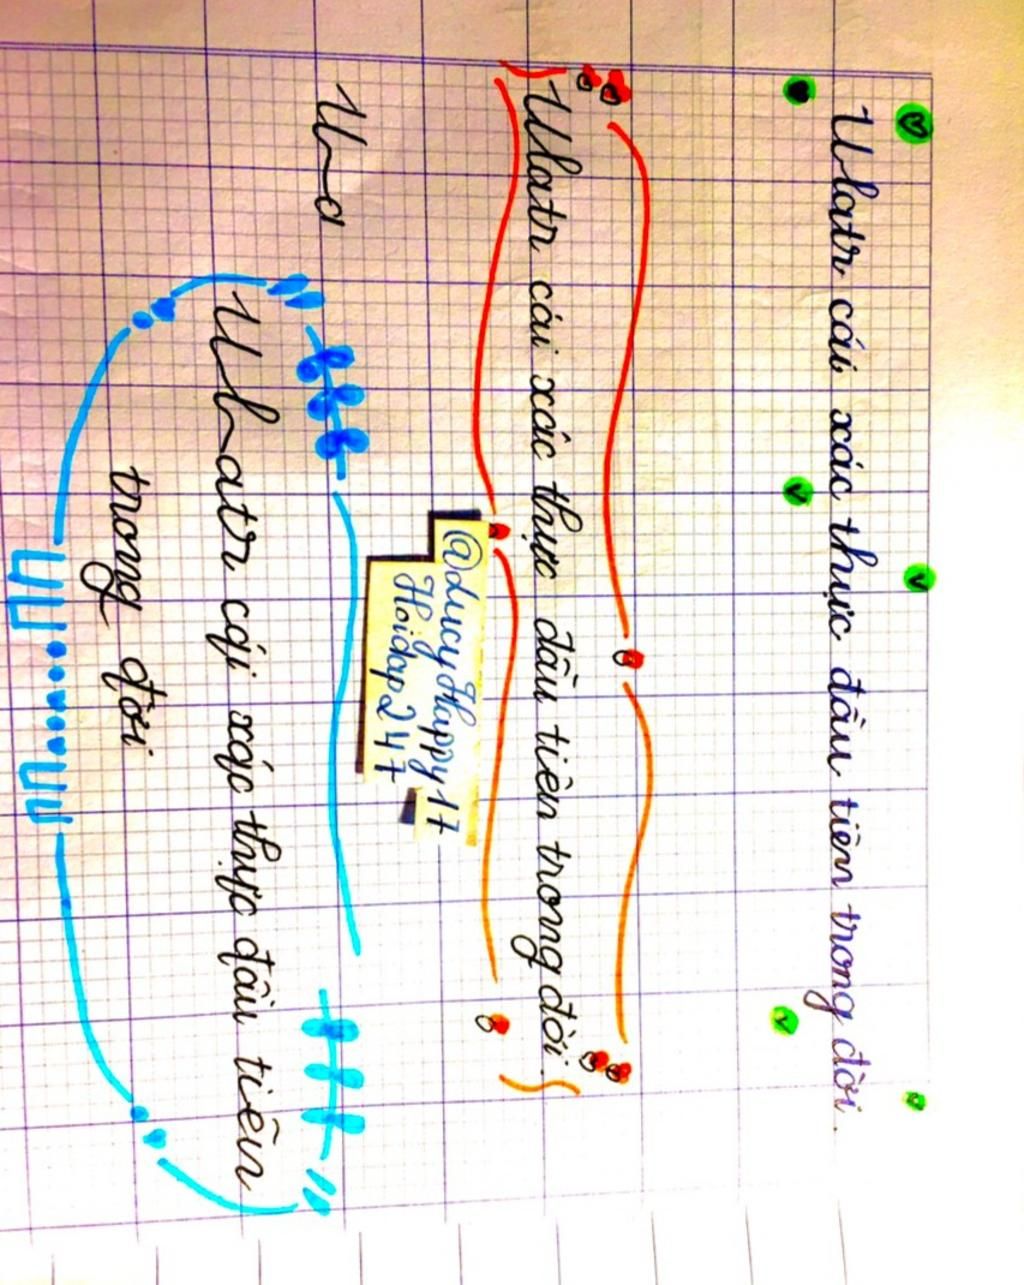 Ulatr cái xác thực đầu tiên trong đời.
Ulatr cái xác thực đầu tiên trong đời.
@LucyHappy17
Hoidap247
U a
Ulatr cái xác thực đầu tiên
trong đời